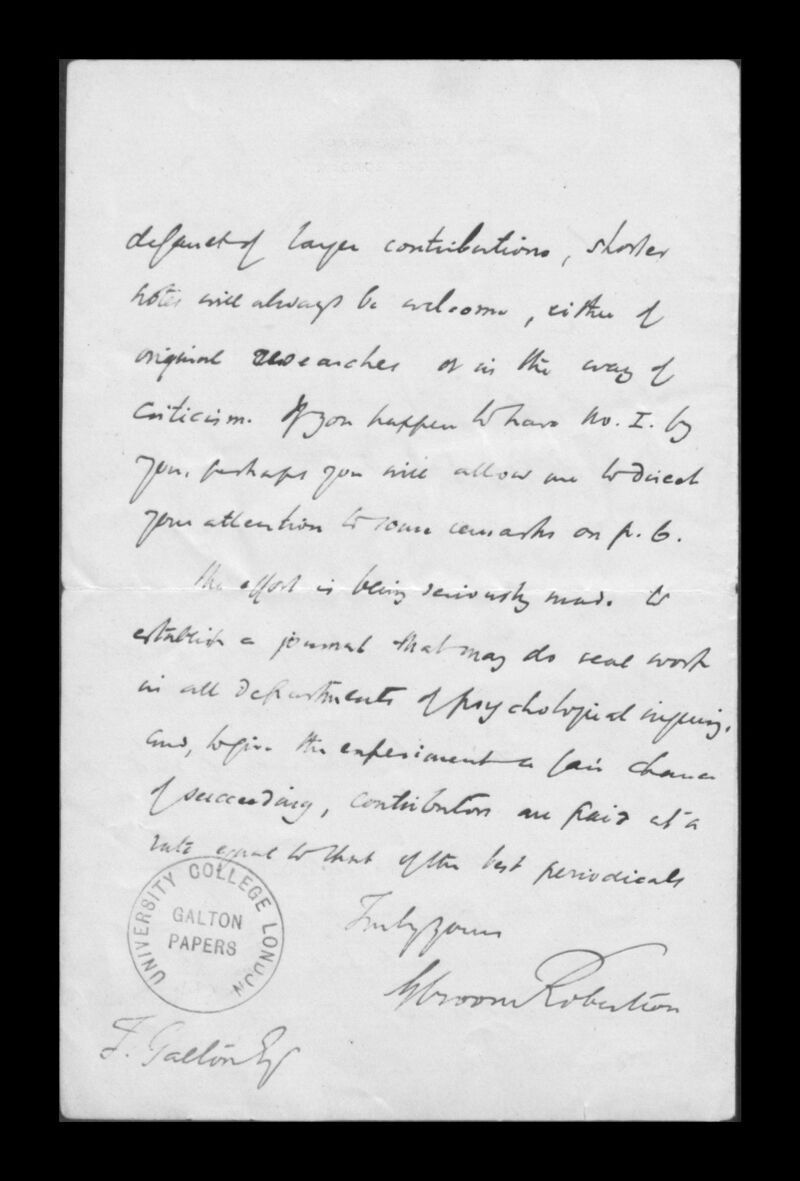 default of larger contributions, shorter
notes will always be welcome, either of
original researches or in the way of
criticism. If you happen to have No. I. by
you, perhaps you will allow me to direct
your attention to some remarks on p. 6.
The effort is being seriously made to
establish a journal that may do real work
in all departments of psychological inquiry,
and, to give the experiment a fair chance
of succeeding, contributors are paid at a
rate equal to that of the best periodicals
Truly yours
G Croom Robertson
UNIVERSITY COLLEGE LONDON
GALTON
PAPERS
F. Galton Esq